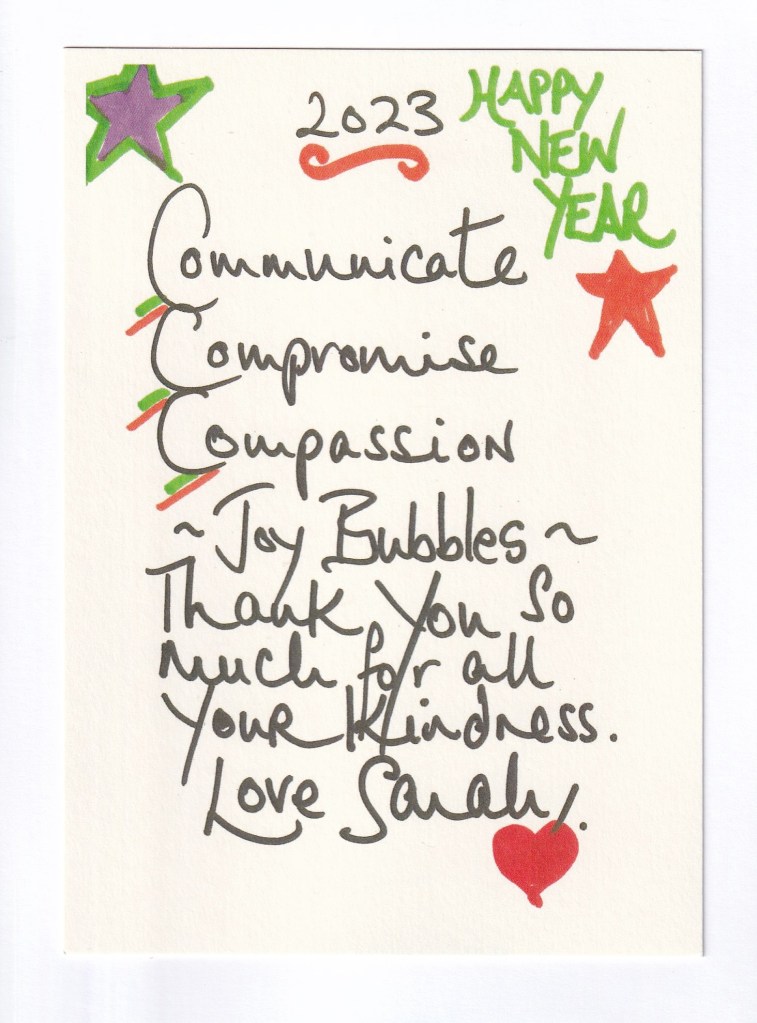 2023
HAPPY
NEW
YEAR
Communicate
Compromise
Compassion
~ Joy Bubbles ~
Thank You So
much for all
Your Kindness.
Love Sarah,.